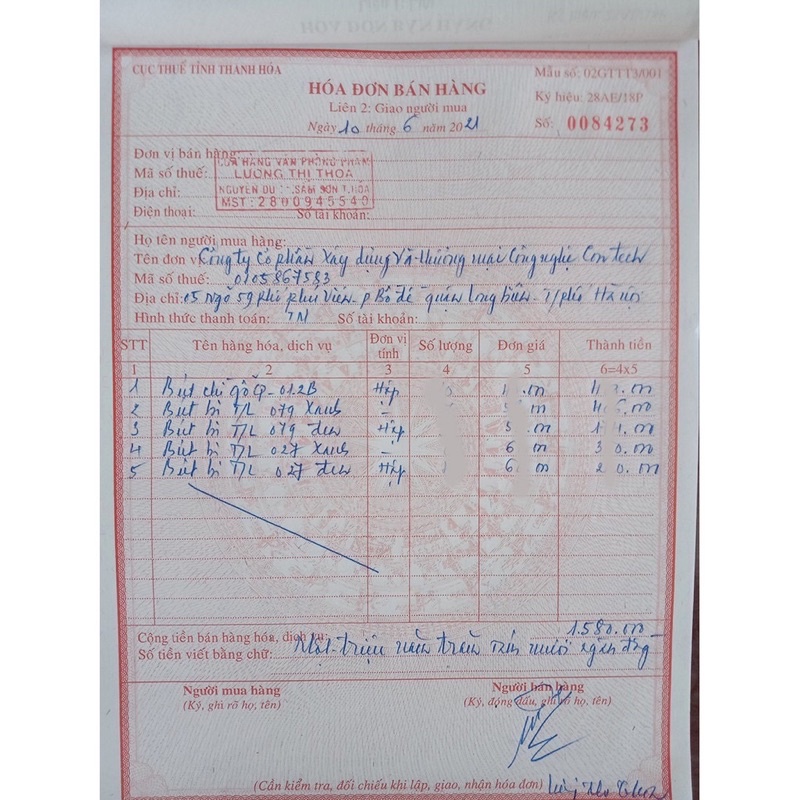 HÓA ĐƠN BÁN HÀNG
CỤC THUẾ TỈNH THANH HÓA
Mẫu số: 02GTTT3/001
HÓA ĐƠN BÁN HÀNG
Ký hiệu: 28AE/18P
Liên 2: Giao người mua
Ngày 10 tháng 6 năm 2021
Số: 0084273
Đơn vị bán hàng:
CỬA HÀNG VĂN PHÒNG PHẨM
Mã số thuế:
LƯƠNG THỊ THOA
Địa chỉ:
NGUYỄN DU SẦM SƠN T.HÓA
MST: 2800945540
Điện thoại: Số tài khoản:
Họ tên người mua hàng:
Tên đơn vị Công ty Cổ phần Xây dựng Và thương mại Công nghệ Contech
Mã số thuế: 0105867583
Địa chỉ: 05 Ngõ 59 phố phú Viên p Bồ đề quận Long biên T/phố Hà nội
Hình thức thanh toán: TM Số tài khoản:
STT Tên hàng hóa, dịch vụ Đơn vị tính Số lượng Đơn giá Thành tiền
1 2 3 4 5 6=4x5
1 Bút chì gỗ 012B Hộp
2 Bút bi T/L 079 Xanh -
3 Bút bi T/L 079 đen Hộp
4 Bút bi T/L 027 Xanh -
5 Bút bi T/L 027 đen Hộp
Cộng tiền bán hàng hóa, dịch vụ: 1.580.000
Số tiền viết bằng chữ: Một triệu năm trăm tám mươi ngàn đồng
Người mua hàng Người bán hàng
(Ký, ghi rõ họ, tên) (Ký, đóng dấu, ghi rõ họ, tên)
(Cần kiểm tra, đối chiếu khi lập, giao, nhận hóa đơn)